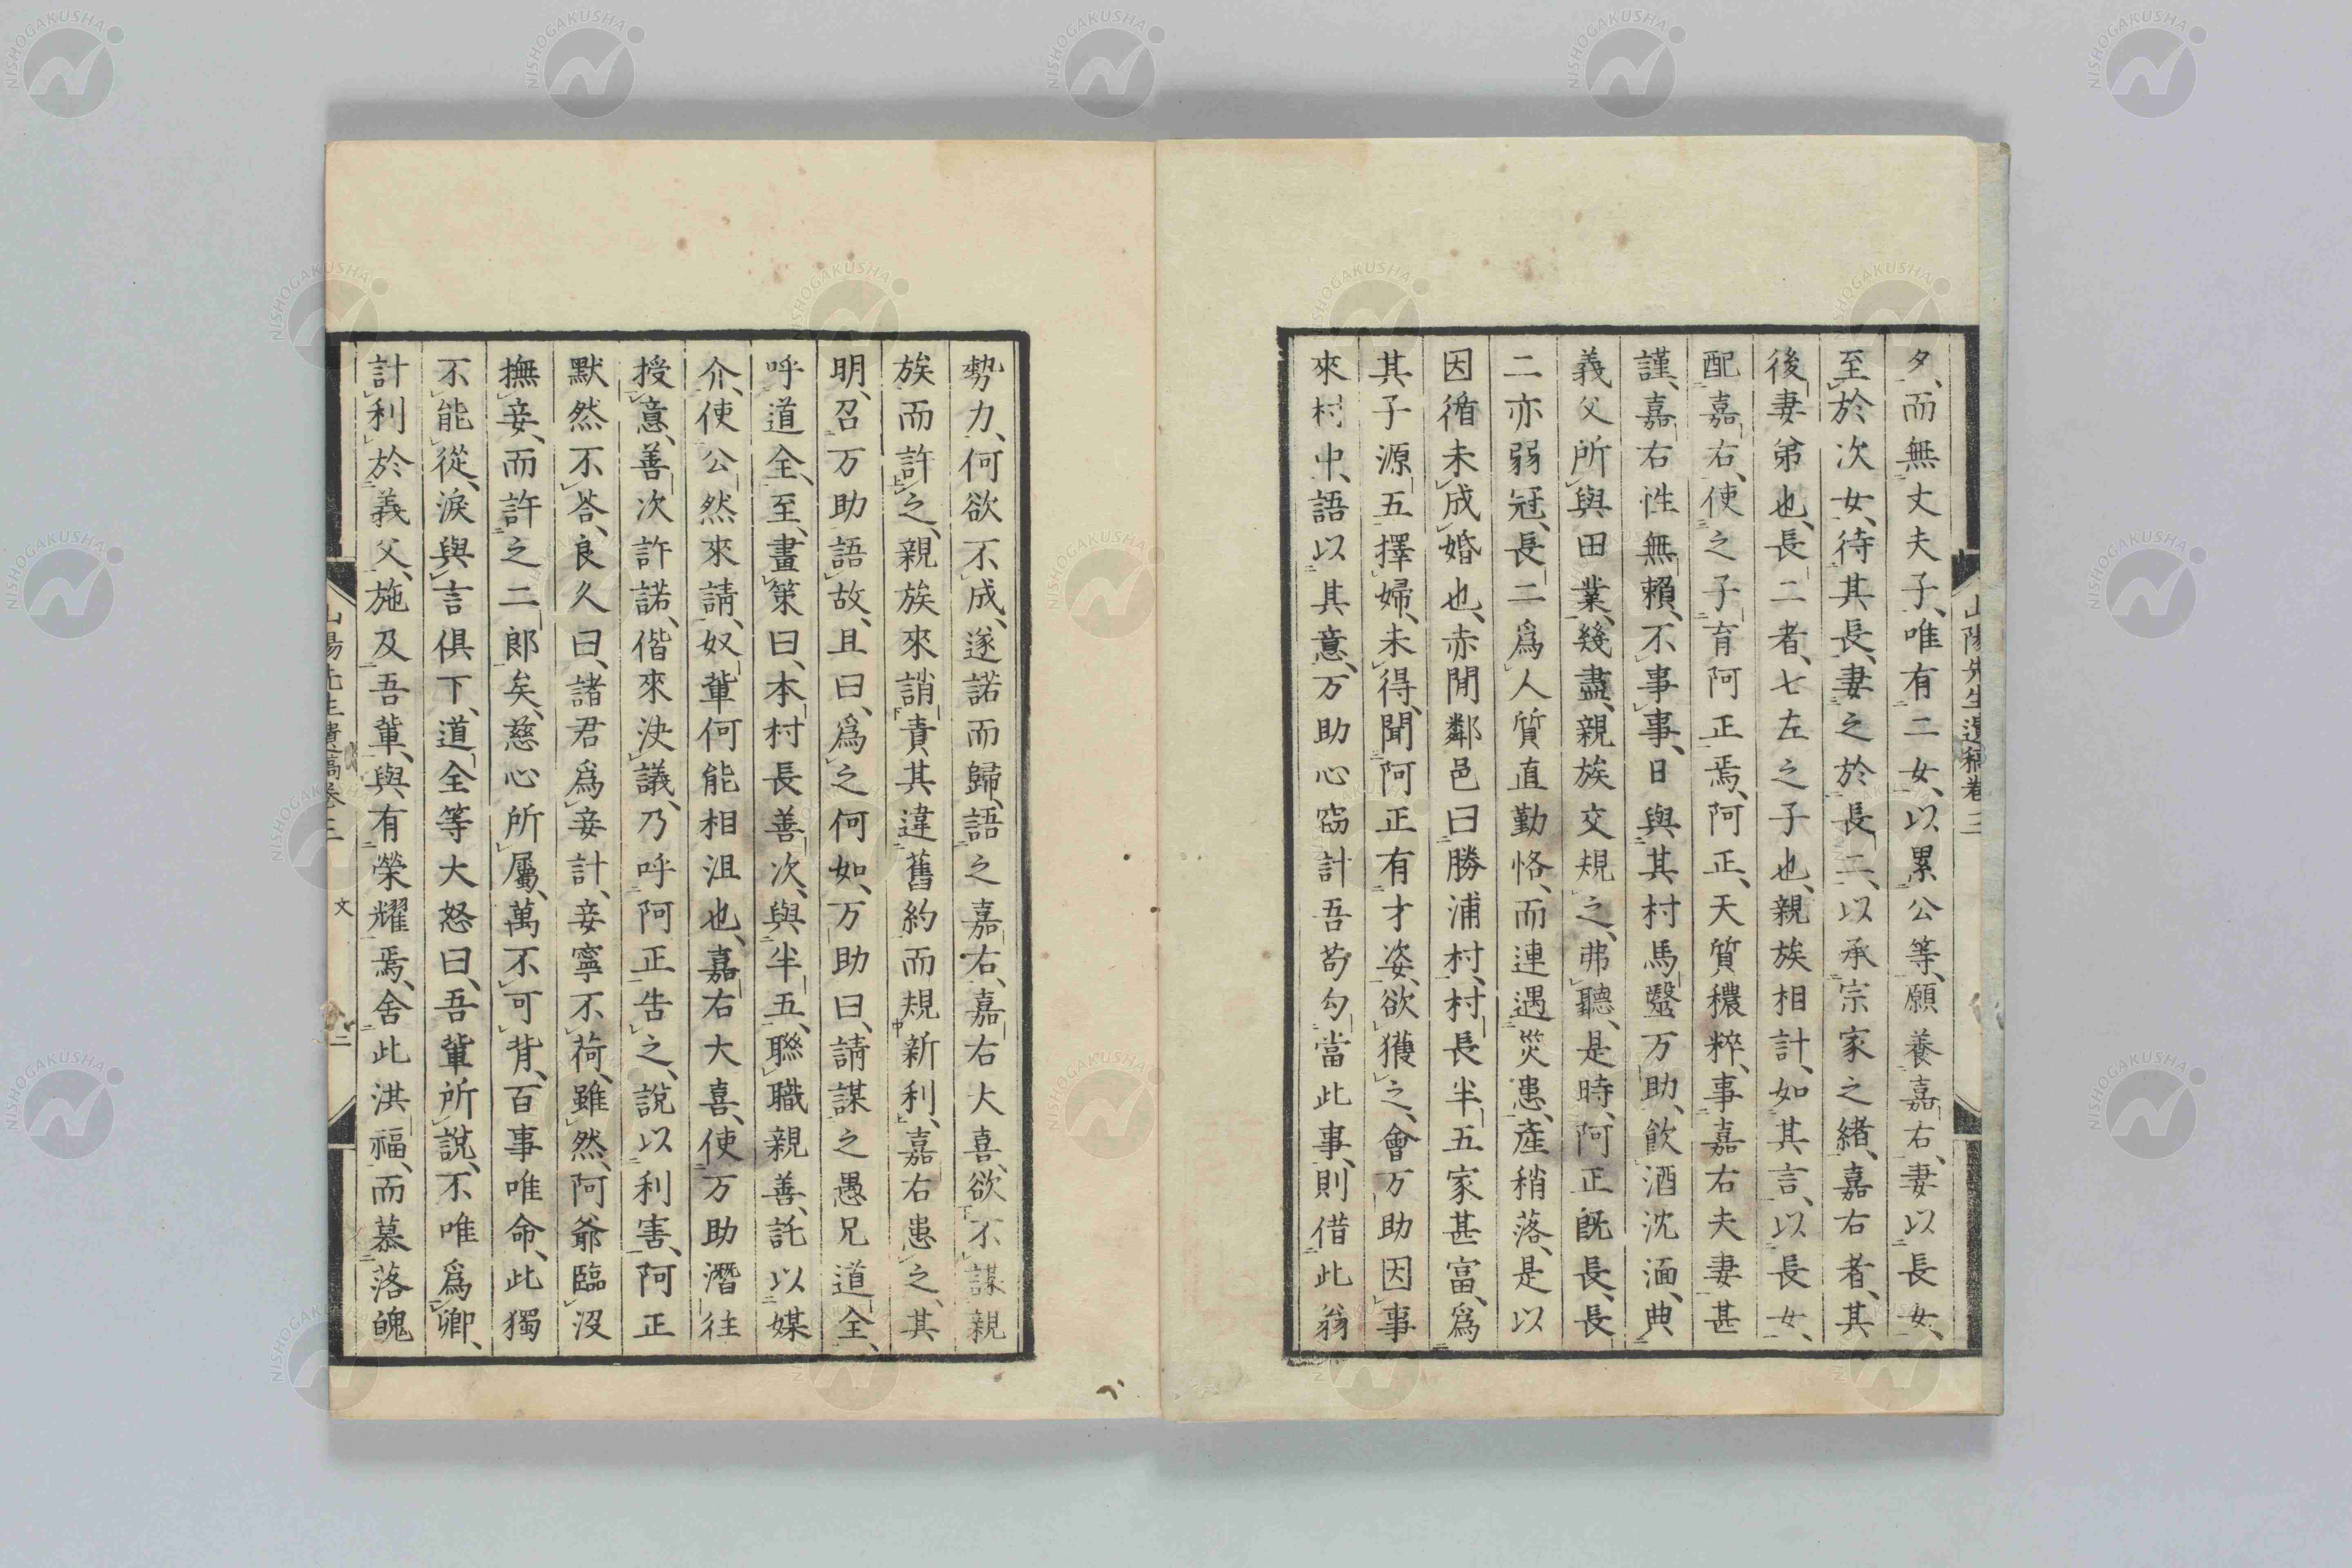 山陽先生遺稿卷三
夕、而無丈夫子、唯有二女、以累公等、願養嘉右、妻以長女、
至於次女、待其長、妻之於長二、以承宗家之緒、嘉右者、其
後妻弟也、長二者、七左之子也、親族相計、如其言、以長女、
配嘉右、使之子育阿正焉、阿正、天質穠粹、事嘉右夫妻甚
謹、嘉右性無賴、不事事、日與其村馬毉万助、飮酒沈湎、典
義父所與田業、幾盡、親族交規之、弗聽、是時、阿正旣長、長
二亦弱冠、長二爲人質直勤恪、而連遇災患、產稍落、是以
因循未成婚也、赤閒鄰邑曰勝浦村、村長半五家甚富、爲
其子源五擇婦、未得、聞阿正有才姿、欲獲之、會万助因事
來村中、語以其意、万助心窃計吾苟勾當此事、則借此翁
勢力、何欲不成、遂諾而歸、語之嘉右、嘉右大喜、欲不謀親
族而許之、親族來誚責其違舊約而規新利、嘉右患之、其
明、召万助語故、且曰、爲之何如、万助曰、請謀之愚兄道全、
呼道全、至、畫策曰、本村長善次、與半五、聯職親善、託以媒
介、使公然來請、奴輩何能相沮也、嘉右大喜、使万助潛往
授意、善次許諾、偕來決議、乃呼阿正告之、說以利害、阿正
默然不答、良久曰、諸君爲妾計、妾寧不荷、雖然、阿爺臨沒
撫妾、而許之二郎矣、慈心所屬、萬不可背、百事唯命、此獨
不能從、淚與言俱下、道全等大怒曰、吾輩所說、不唯爲卿、
計利於義父、施及吾輩、與有榮耀焉、舍此洪福、而慕落魄
山陽先生遺稿卷三
文
二